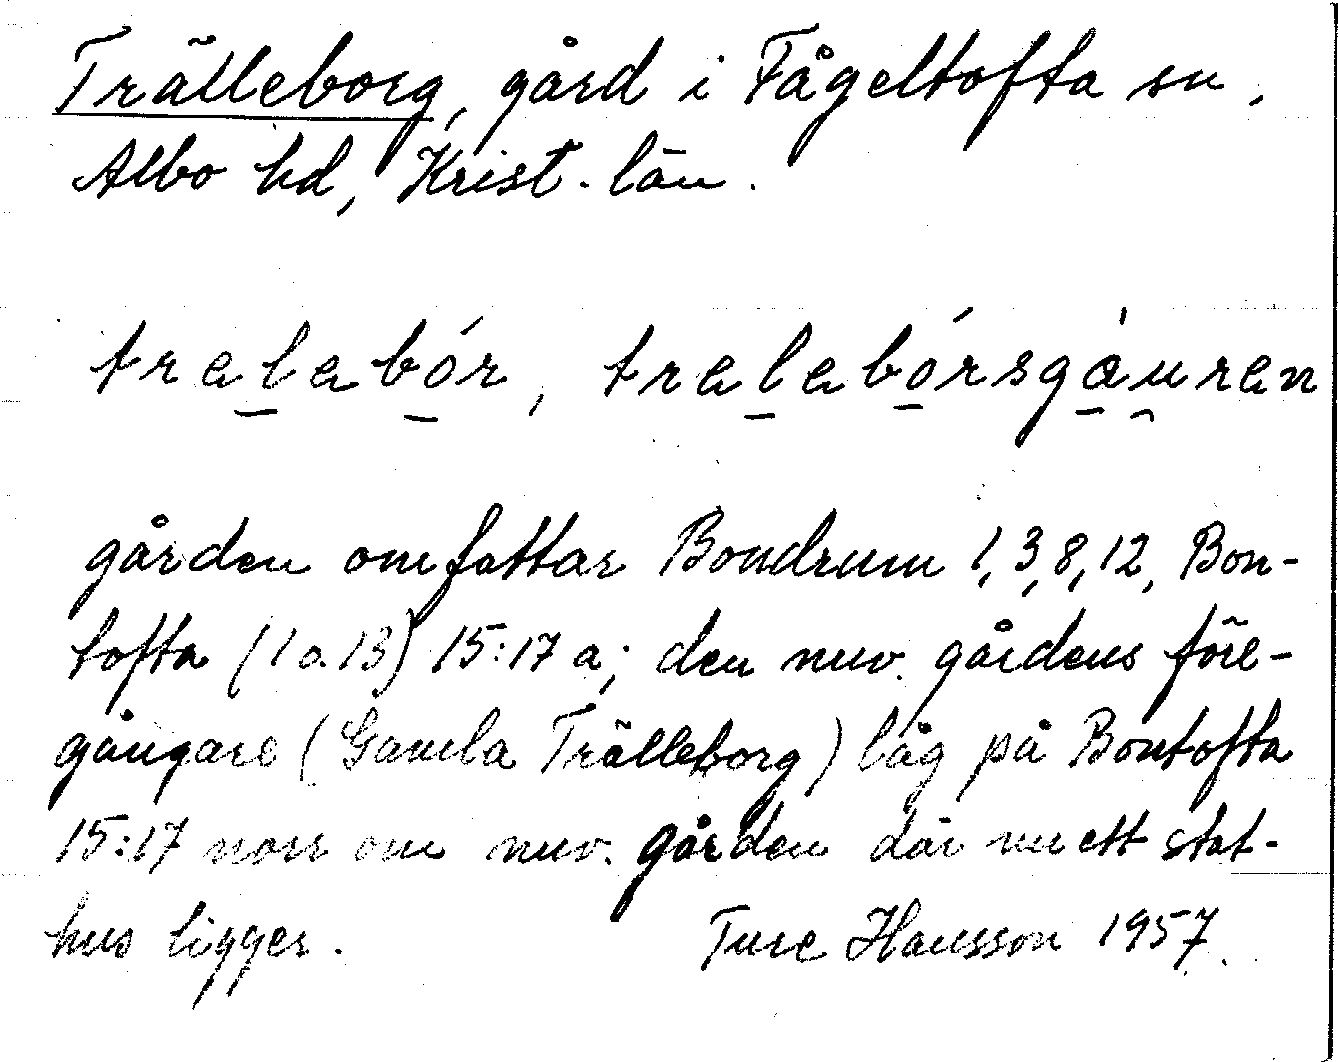 Trälleborg, gård i Fågeltofta sn,
Albo hd, Krist. län.
tralabór, tralabórsgáuren
gården omfattar Bondrum 1, 3, 8, 12, Bon-
tofta (1 o. 13) 15:17 a; den nuv. gårdens före-
gångare (Gamla Trälleborg) låg på Bontofta
15:17 norr om nuv. gården där nu ett stat-
hus ligger. Ture Hansson 1957.